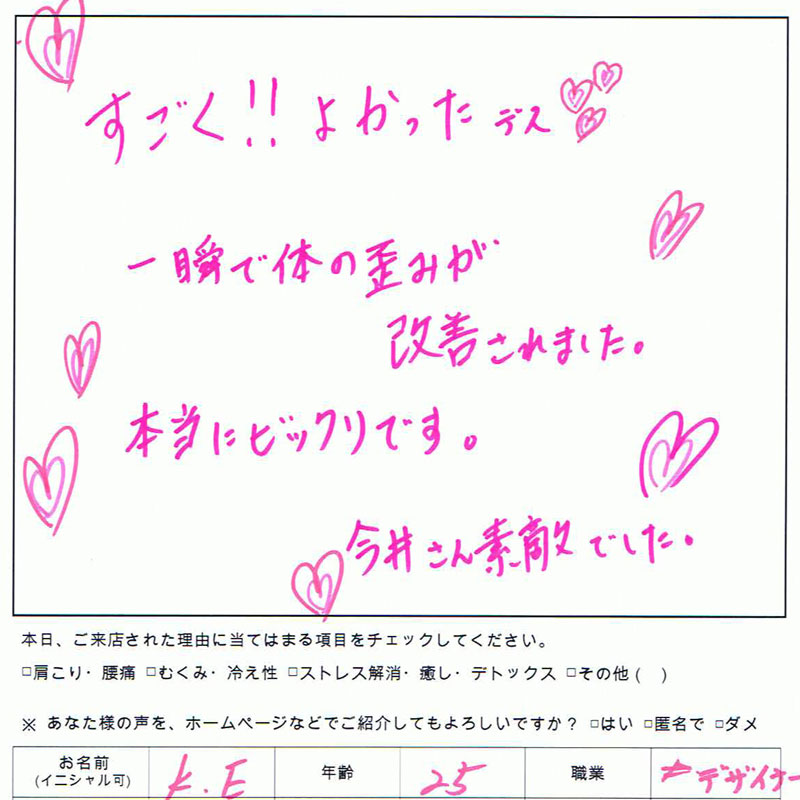 すごく!!よかったデス
一瞬で体の歪みが
改善されました。
本当にビックリです。
今井さん素敵でした。
本日、ご来店された理由に当てはまる項目をチェックしてください。
□肩こり・腰痛 □むくみ・冷え性 □ストレス解消・癒し・デトックス □その他( )
※ あなた様の声を、ホームページなどでご紹介してもよろしいですか? □はい □匿名で □ダメ
お名前 K.E 年齢 25 職業 デザイナー
(イニシャル可)